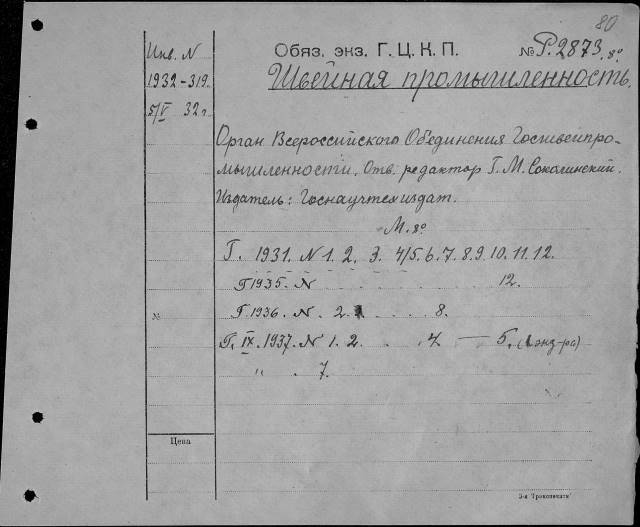 80
Инв. N
1932-319.
5/V 32 г.
Обяз. экз. Г. Ц. К. П.
№ Р.2873.8°
Швейная промышленность.
Орган Всероссийского Объединения Госшвейпро-
мышленности. Отв. редактор Г. М. Соколинский.
Издатель: Госнаучтехиздат.
М. 8°
Г. 1931. N 1. 2. 3. 4/5. 6. 7. 8. 9. 10. 11. 12.
Г 1935. N 12.
№
Г 1936. N. 2. 8.
Г. IX. 1937. N 1. 2. 4. — 5. (1 экз-ра)
" 7.
Цена
3-я Тропечати